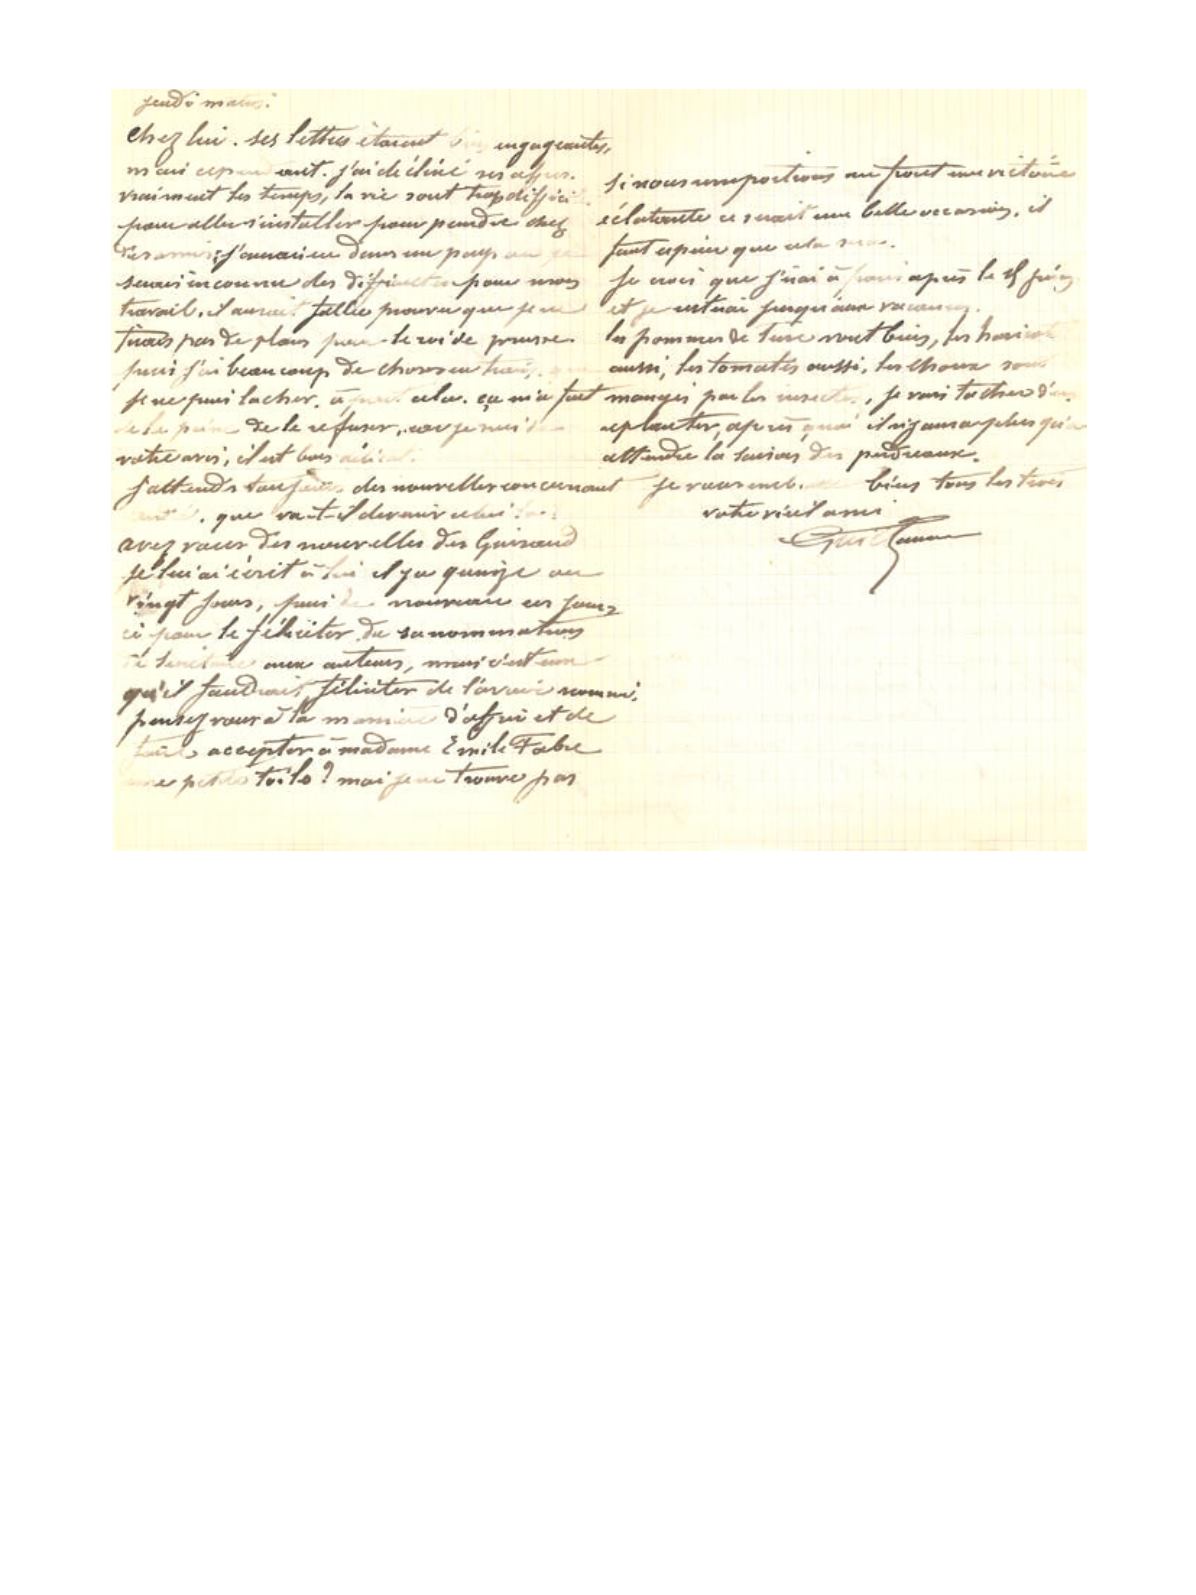 jeudi matin.
chez lui. ses lettres étaient bien engageantes,
mais cependant. j'ai décliné ses offres.
vraiment les temps, la vie sont trop difficiles
pour aller s'installer pour peindre chez
des amis; j'aurai eu dans un pays ou je
serais inconnu des difficultés pour mon
travail. il aurait fallu prouver que je ne
tirais pas de plans pour le roi de prusse.
puis j'ai beaucoup de choses en train, que
je ne puis lacher. à part cela. ça m'a fait
de la peine de le refuser, car je suis de
votre avis, il est bon
j'attends toujours des nouvelles concernant
que va-t-il devenir celui là?
avez vous des nouvelles des Guiraud
je lui ai écrit à lui il y a quinze ou
vingt jours, puis de nouveau ces jours
ci pour le féliciter de sa nomination
de secrétaire aux auteurs, mais c'est eux
qu'il faudrait féliciter de l'avoir nommé.
pensez vous à la manière d'offrir et de
faire accepter à madame Emile Fabre
une petite toile? moi je ne trouve pas
si nous remportions au front une victoire
éclatante ce serait une belle occasion, il
faut espérer que cela sera.
je crois que j'irai à paris après le 15
et je resterai jusqu'aux vacances.
les pommes de terre vont bien, les haricots
aussi, les tomates aussi, les choux sont
mangés par les insectes, je vais tacher d'en
replanter, après quoi il n'y aura plus qu'à
attendre la saison des perdreaux.
je vous embrasse bien tous les trois
votre vieil ami